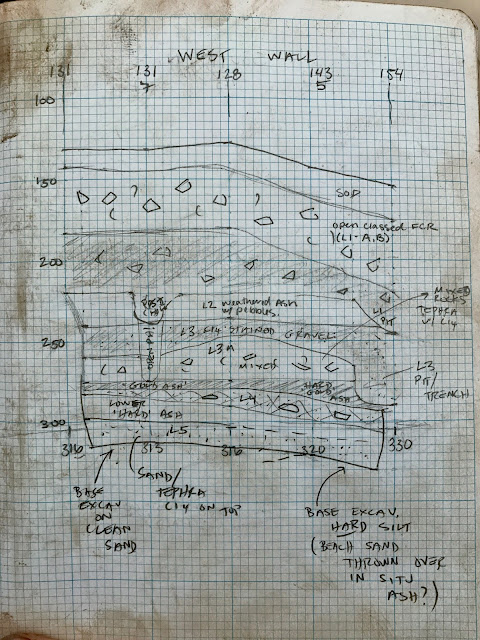 WEST WALL
131 131 128 143 154
7 5
100
150
SOD
?
?
open classed FCR
(L1-A,B)
200
MIXED
ROCKS
TEPHRA
W/ L14
POST
L2 weathered Ash
w/ pebbles.
L1
PIT
L3 STAINED GRAVEL
250
L3A
MIXED
L3
PIT/
TRENCH
GOLD ASH
HARD
GOLD
ASH
LOWER
'HARD' ASH
L4
300
L5
316 313 316 320 330
SAND/
TEPHRA
C14 ON TOP
BASE
EXCAV
ON
CLEAN
SAND
BASE EXCAV,
HARD SILT
(BEACH SAND
THROWN OVER
IN SITU
ASH?)